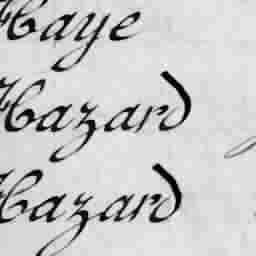 Haye
Hazard
Hazard